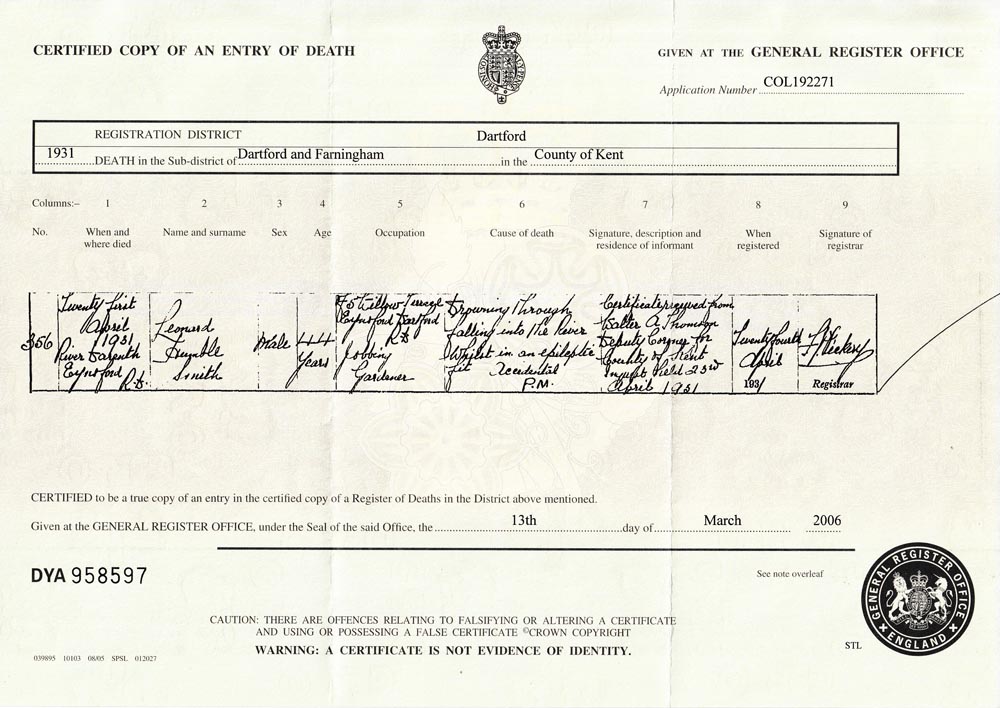 CERTIFIED COPY OF AN ENTRY OF DEATH
GIVEN AT THE GENERAL REGISTER OFFICE
Application Number COL192271
REGISTRATION DISTRICT Dartford
1931 DEATH in the Sub-district of Dartford and Farningham in the County of Kent
Columns:– 1 2 3 4 5 6 7 8 9
No. When and where died Name and surname Sex Age Occupation Cause of death Signature, description and residence of informant When registered Signature of registrar
356
Twenty first
April
1931
River Darenth
Eynsford R.D.
Leonard
Humble
Smith
Male
44
Years
Willow Terrace
Eynsford Dartford
R.D.
Jobbing
Gardener
Drowning through
falling into the River
Whilst in an epileptic
fit Accidental
P.M.
Certificate received from
Walter A Thomson
Deputy Coroner for
County of Kent
Inquest held 23rd
April 1931
Twenty fourth
April
1931
Registrar
CERTIFIED to be a true copy of an entry in the certified copy of a Register of Deaths in the District above mentioned.
Given at the GENERAL REGISTER OFFICE, under the Seal of the said Office, the 13th day of March 2006
DYA 958597
See note overleaf
GENERAL REGISTER OFFICE
ENGLAND
CAUTION: THERE ARE OFFENCES RELATING TO FALSIFYING OR ALTERING A CERTIFICATE
AND USING OR POSSESSING A FALSE CERTIFICATE ©CROWN COPYRIGHT
WARNING: A CERTIFICATE IS NOT EVIDENCE OF IDENTITY.
STL
039895 10103 08/05 SPSL 012027